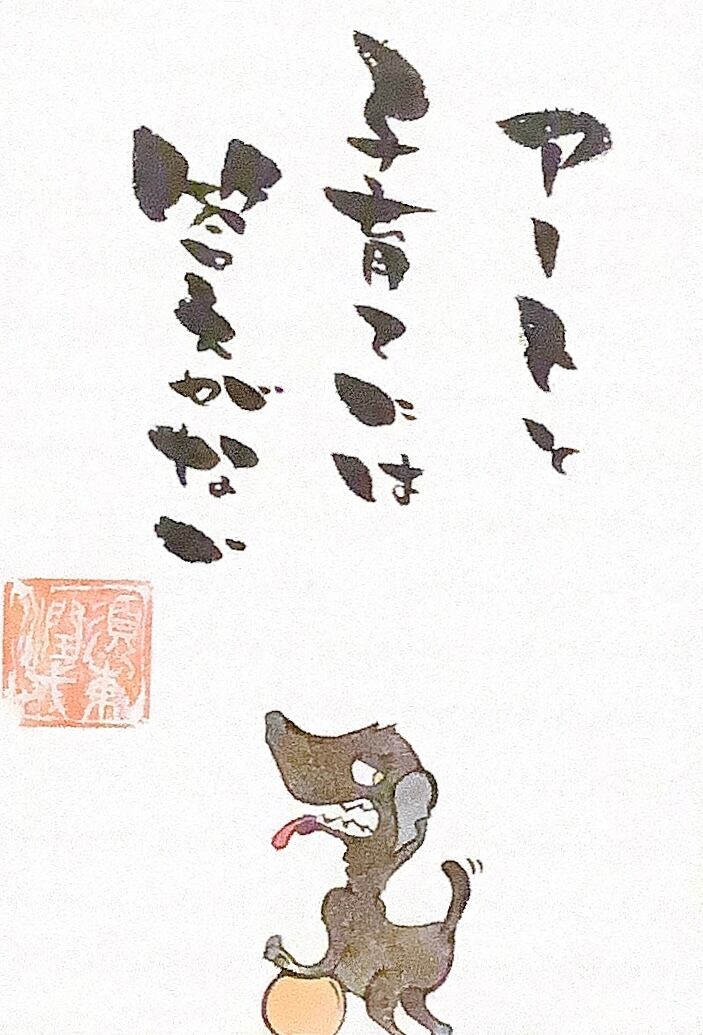 アートと
子育てには
答えがない